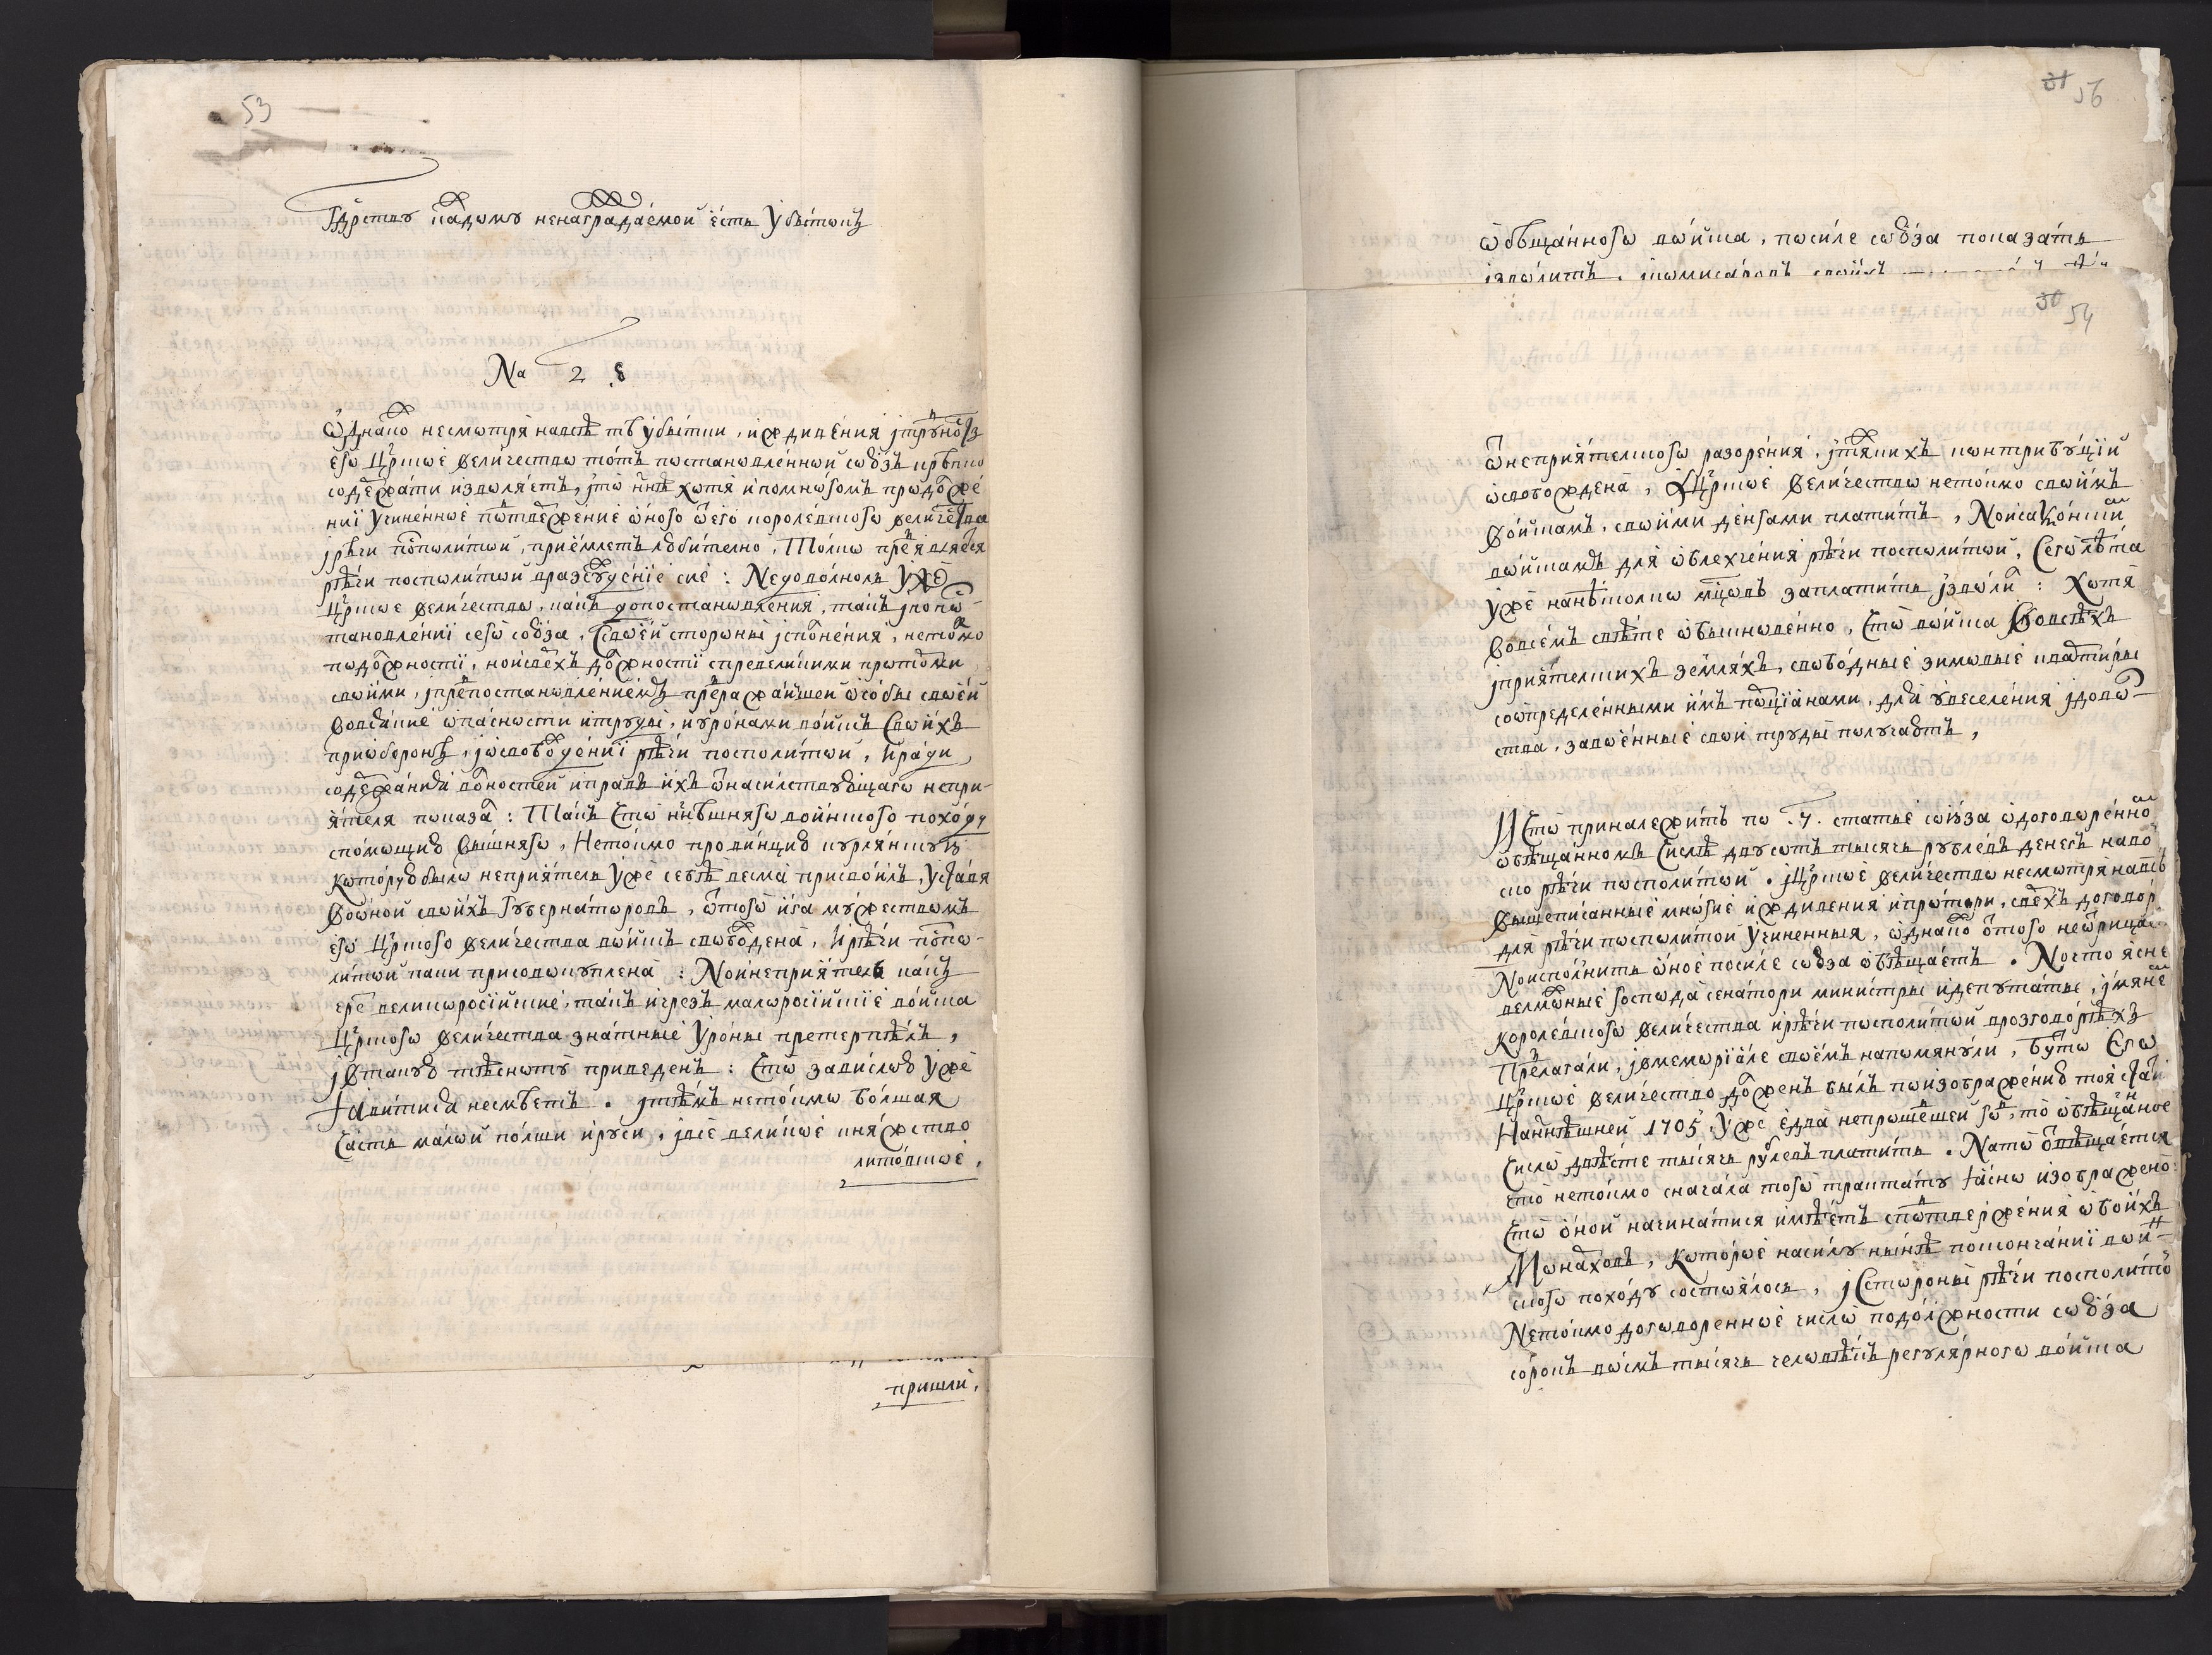 53
Гдрству падому ненаградаемой есть убытокъ
На 2 8
ѿднако несмотря навсѣ тѣ убытки, иждивения ітруность
его Црское величество тотъ постановленной союзъ крѣпко
содержати изволяетъ, что ннѣ хотя ипомногомъ продолже
нии учиненное потвержение оного ѿего королевского величества
ірѣчи посполитой, приемлетъ любително, Толко преявляется
рѣчи посполитой вразсуждение сие: Недоволноль уже
Црское величество, какъ допостановления, такъ іпопо-
становлении сего союза, своей стороны ісполнения, нетолко
подолжности, ноисверхъ должности спревеликими протори
своими, іпрепостановлениемъ прережайшей особы своей
вовсякие опасности итруды, иуронами воискъ своихъ
приоборонѣ, іосвобождении рѣчи посполитой, иради
содержания волностей иправъ ихъ ѿнасилствующаго непри-
ятеля показа: Такъ что ннѣшняго воинского походу
спомощию вышняго, Нетокмо провинцию курляндскую
которую было неприятель уже себѣ весма присвоилъ, уставя
воной своихъ губернаторовъ, ѿтого ига мужествомъ
его Црского величества воискъ свобождена, ирѣчи поспо-
литой паки присовокуплена: Ноинеприятель какъ
чрезъ великоросийские, такъ ичрезъ малоросийские воиска
Црского величества знатные уроны претерпѣлъ,
івтакую тѣсноту приведенъ: что завислою уже
авитися несмѣетъ. ітѣмъ нетокмо болшая
часть малой полши ируси, івсе великое княжство
литовское,
пришли,
31 56
обѣщанного воиска, посиле союза показать
изволитъ, комисаровъ своихъ
30 54
ѿнеприятелского разорения, ітяжкихъ контрибуций
освобождена, Црское величество нетокмо своимъ
воискамъ, своими денгами платитъ, Ноисаксонски
воискамъ для облехчения рѣчи посполитой, сего лѣта
уже нанѣколко мцовъ заплатить изволи: Хотя
вовсемъ свѣте обыкновенно, что воиска вовсѣхъ
іприятелскихъ земляхъ, свободные зимовые квартиры
сопределенными имъ порціанами, для увеселения ідово-
ства, завоенные свои труды получаютъ,
И что принадлежитъ по .7. статье союза одоговоренно
обѣщанномъ числѣ двусотъ тысячь рублевъ денегъ навой
ско рѣчи посполитой. Црское величество несмотря навсѣ
вышеписанные многие иждивения ипротори, сверхъ договор
для рѣчи посполитой учиненныя, однако ѿтого неѿрица
Ноисполнить оное посиле союза обѣщаетъ. Ночто ясне
велможные господа сенатори министры идепутаты, імяне
королевского величества ирѣчи посполитой вразговорѣхъ
Прелагали, івмемориале своемъ напомянули, буто Его
Црское величество долженъ былъ поизображению тоя стати
Наннѣшней 1705, уже едва непрошешей го, то обѣщаное
число двѣсте тысячь рублевъ платить. Нато ѿвѣщается
что нетокмо сначала того трактату ясно изображено:
что оной начинатися имѣетъ спотвержения обоихъ
Монархов, которое насилу нынѣ поокончании воин-
ского походу состоялось, істороны рѣчи посполито
Нетокмо договоренное число подолжности союза
сорокъ восмь тысячь человѣкъ регулярного воиска